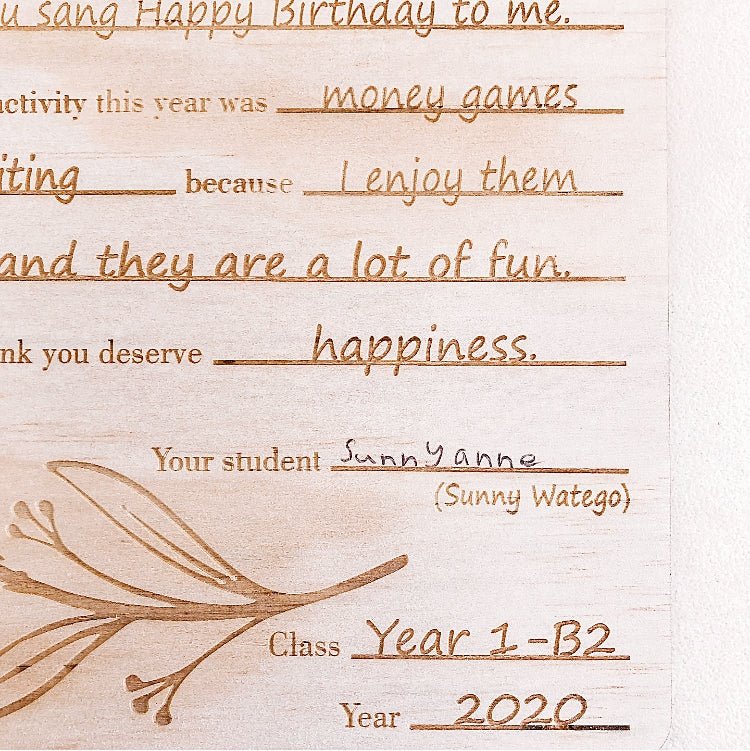 u sang Happy Birthday to me.
activity this year was money games
iting because I enjoy them
and they are a lot of fun.
nk you deserve happiness.
Your student Sunnyanne
(Sunny Watego)
Class Year 1-B2
Year 2020